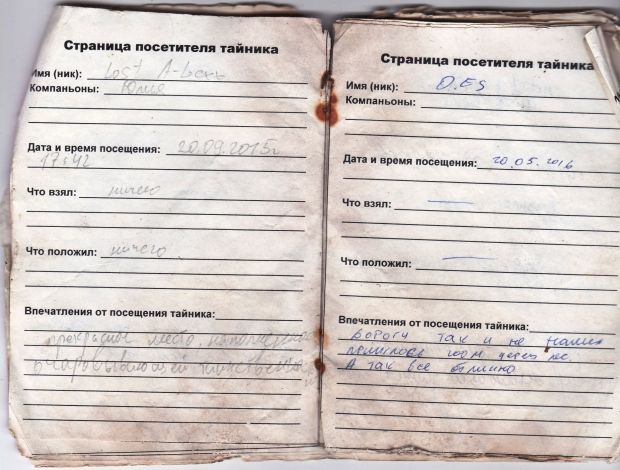 Страница посетителя тайника
Имя (ник): Lost
Компаньоны: Юлия
Дата и время посещения: 20.09.2015г
17:42
Что взял: ничего
Что положил: ничего
Впечатления от посещения тайника:
прекрасное место, наполненное
очаровывающей
Страница посетителя тайника
Имя (ник): O.ES
Компаньоны:
Дата и время посещения: 20.05.2016
Что взял: —
Что положил: —
Впечатления от посещения тайника:
Дорогу так и не нашли
пришлось идти через лес
А так все отлично